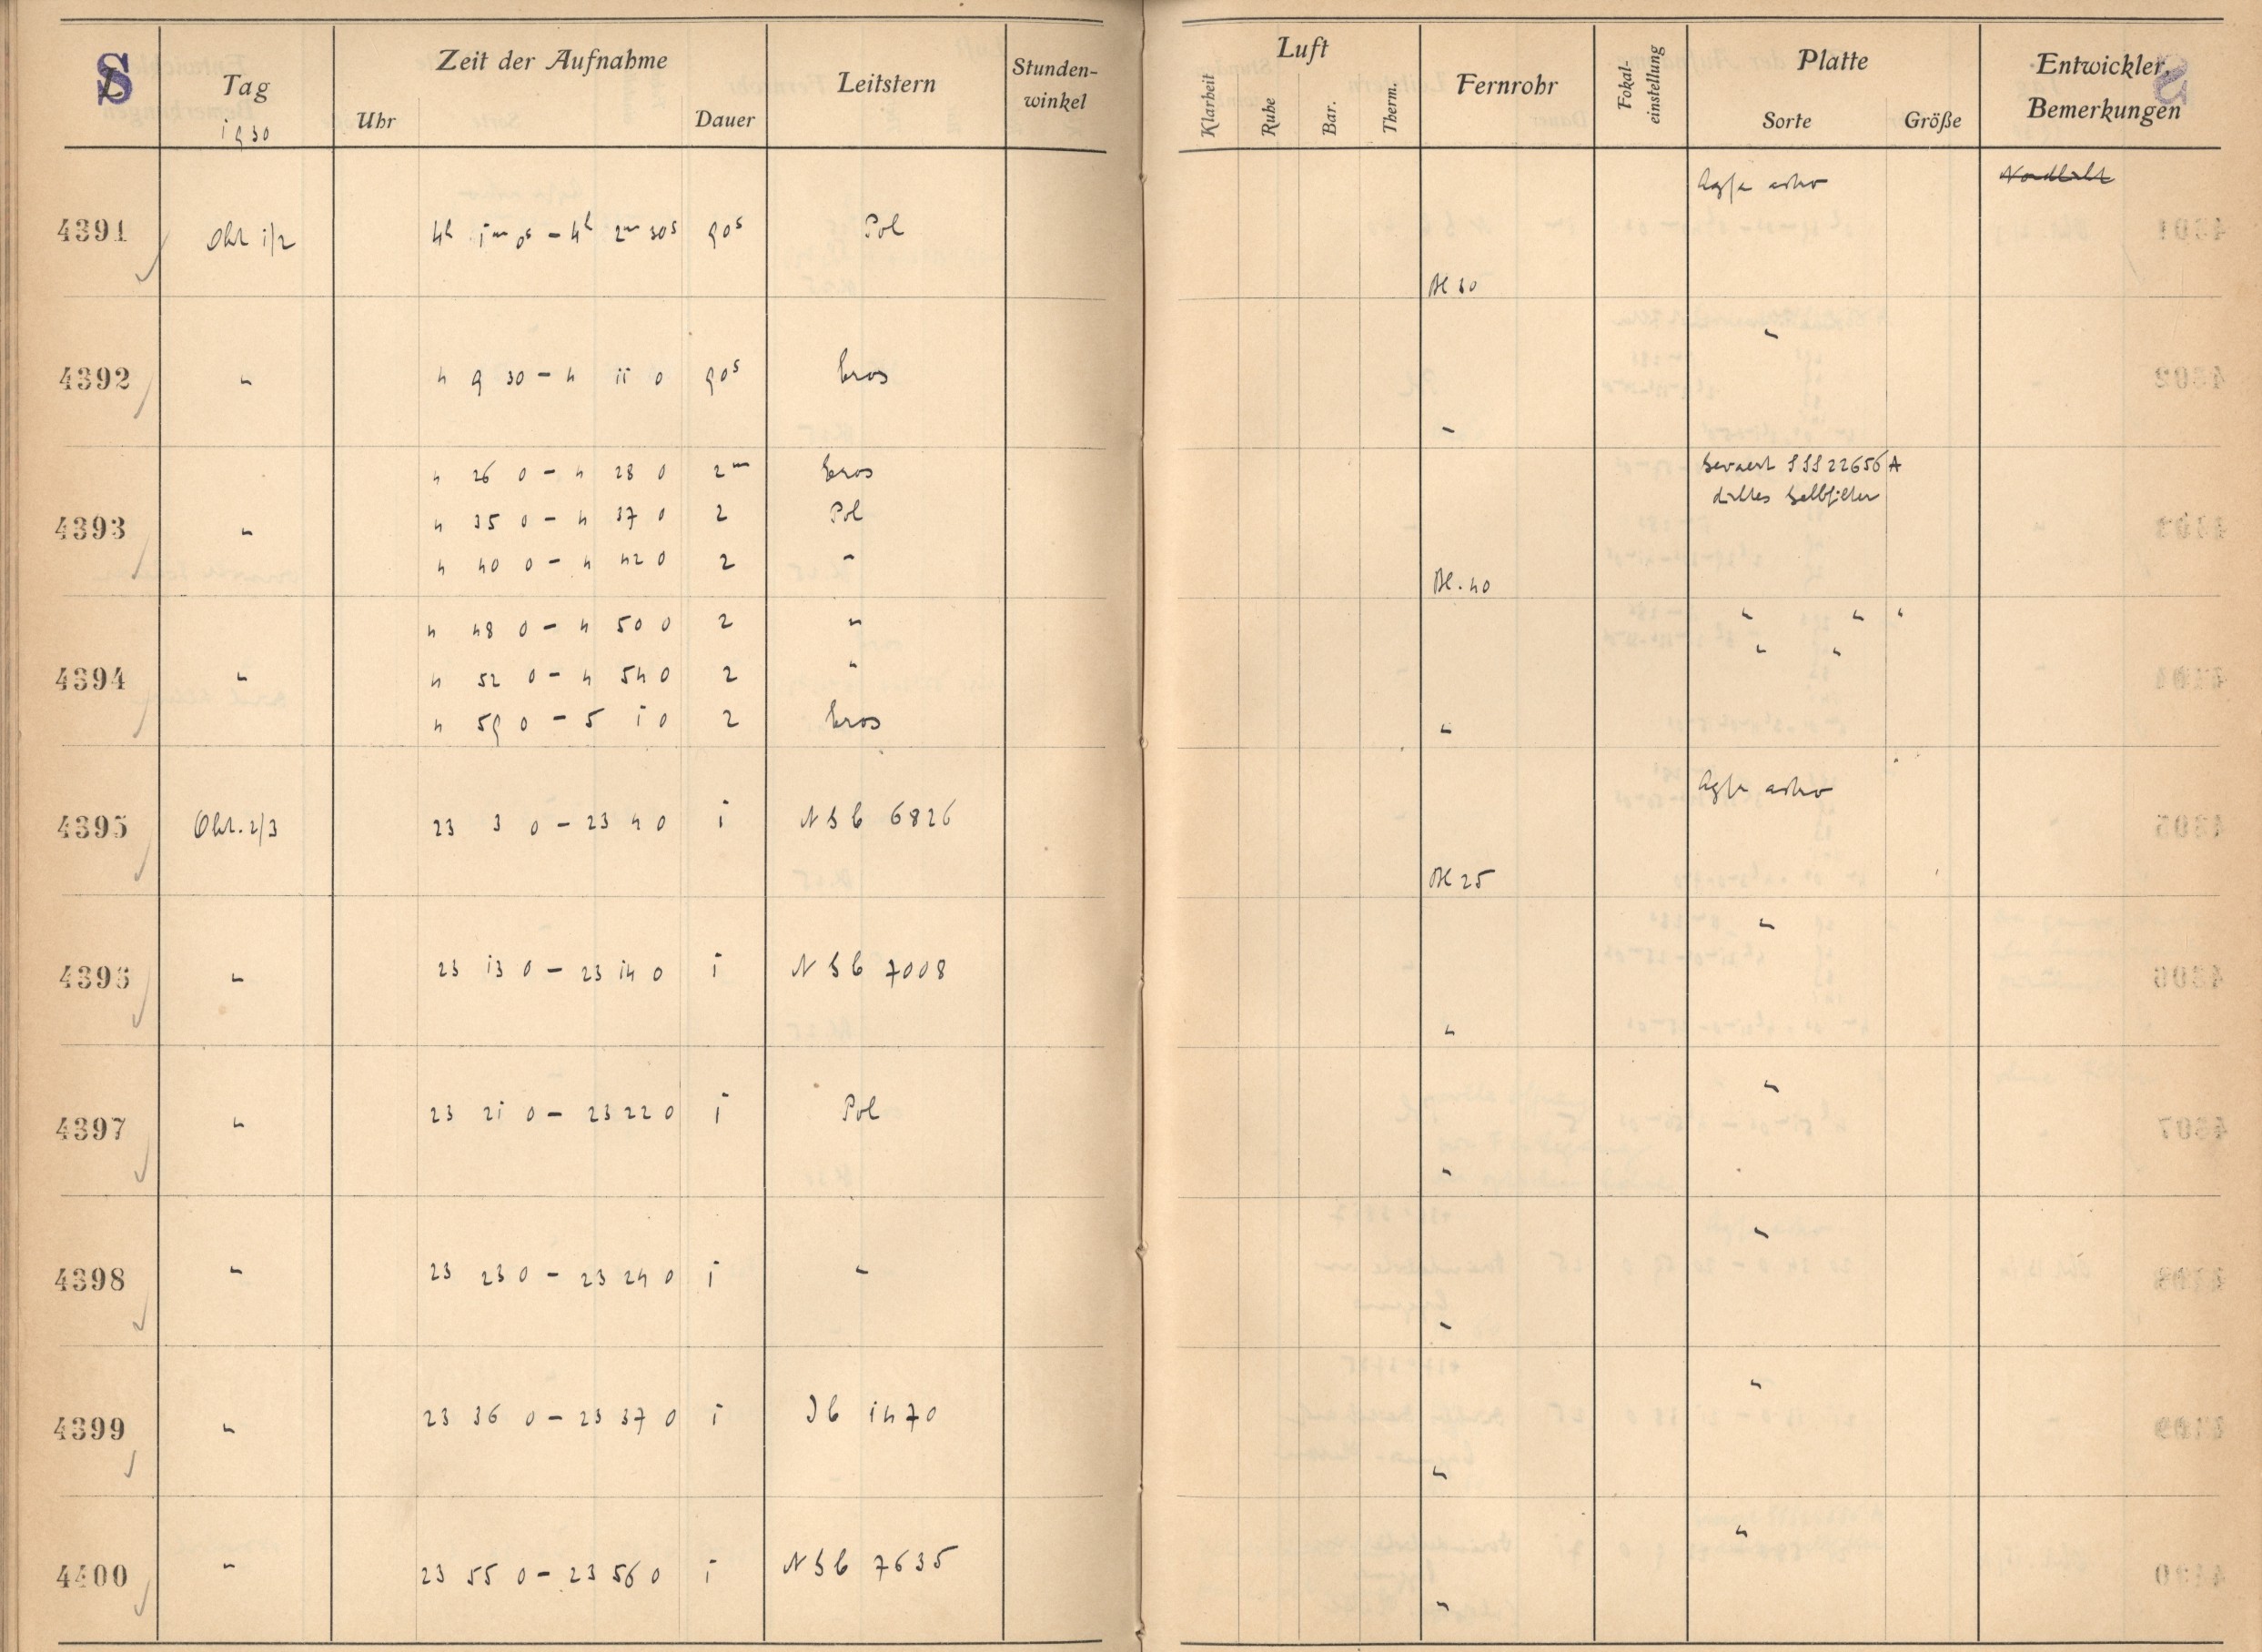 S
Tag
1930
Zeit der Aufnahme
Uhr
Dauer
Leitstern
Stunden-
winkel
Luft
Klarheit
Ruhe
Bar.
Therm.
Fernrohr
Fokal-
einstellung
Platte
Sorte
Größe
Entwickler,
Bemerkungen
Agfa astro
Nordlicht
4391 Okt 1/2 4h 1m 0s – 4h 2m 30s 90s Pol
Bl 30
"
4392 " 4 9 30 – 4 11 0 90s Eros
"
4 26 0 – 4 28 0 2m Eros Gevaert SSS 22656 A
dichtes Gelbfilter
4393 " 4 35 0 – 4 37 0 2 Pol
4 40 0 – 4 42 0 2 "
Bl. 40
4 48 0 – 4 50 0 2 " " " "
" "
4394 " 4 52 0 – 4 54 0 2 "
4 59 0 – 5 1 0 2 Eros "
Agfa astro
4395 Okt. 2/3 23 3 0 – 23 4 0 1 N G C 6826
Bl 25
"
4396 " 23 13 0 – 23 14 0 1 N G C 7008
"
"
4397 " 23 21 0 – 23 22 0 1 Pol
"
"
4398 " 23 23 0 – 23 24 0 1 "
"
"
4399 " 23 36 0 – 23 37 0 1 J C 1470
"
"
4400 " 23 55 0 – 23 56 0 1 N G C 7635
"